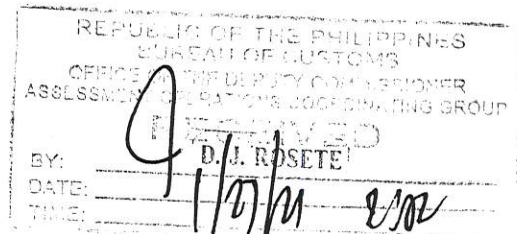 REPUBLIC OF THE PHILIPPINES
BUREAU OF CUSTOMS
OFFICE OF THE DEPUTY COMMISSIONER
ASSESSMENT OPERATIONS COORDINATING GROUP
RECEIVED
BY: D. J. ROSETE
DATE: 1/27/21
TIME: